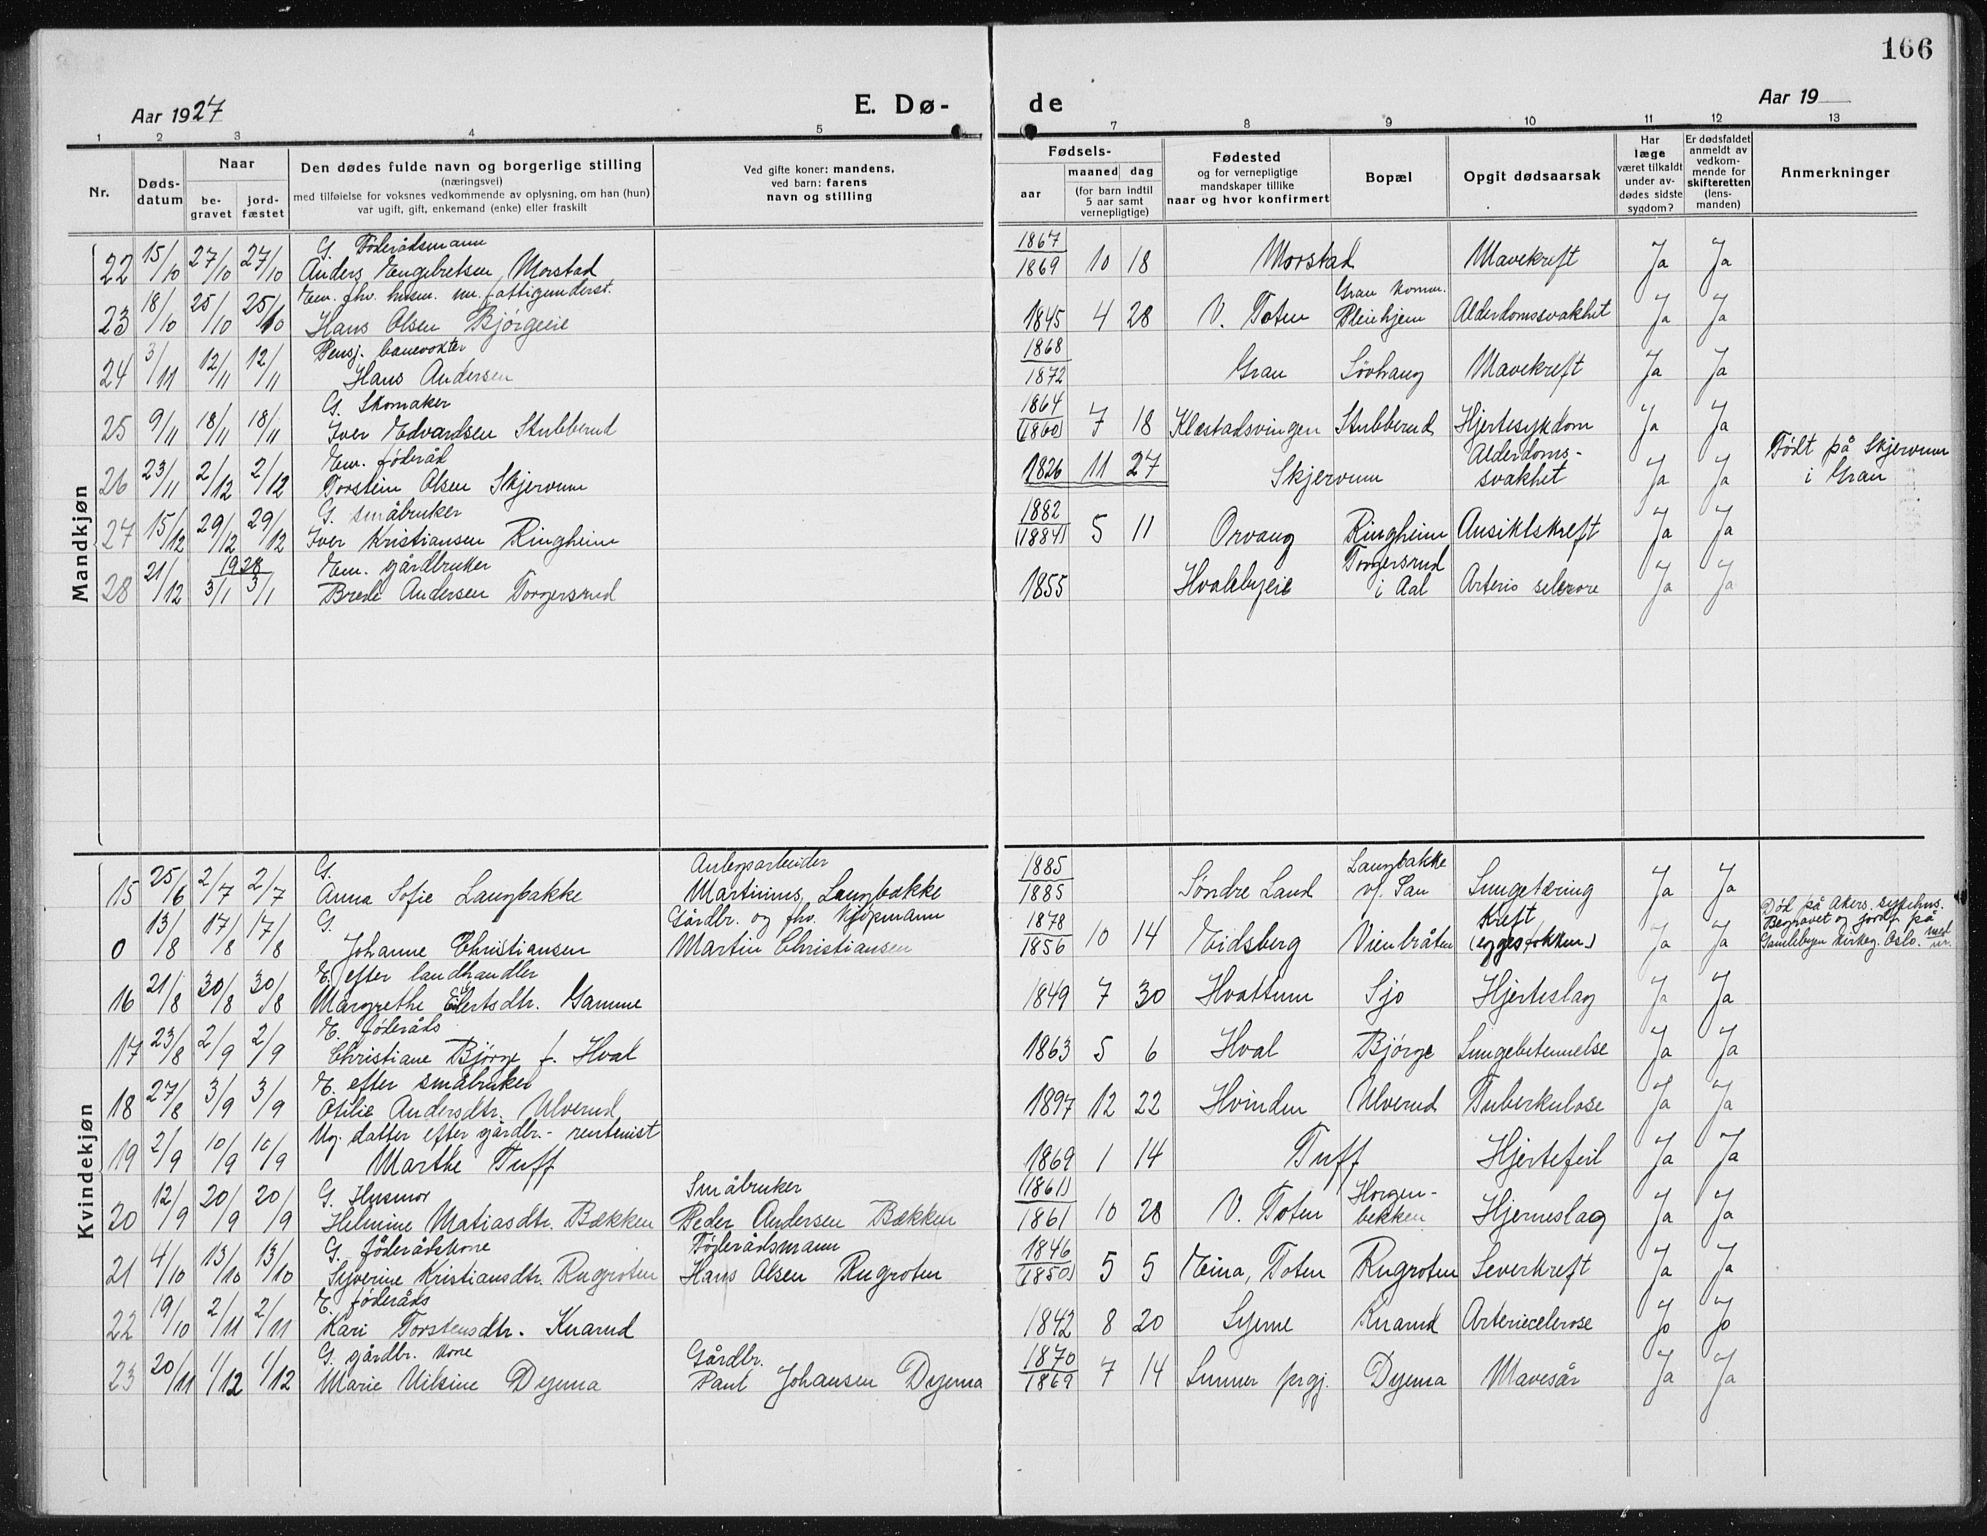 166
Aar 1927
E. Dø-
de
Aar 19
1 2 3 4 5 7 8 9 10 11 12 13
Nr.
Døds-
datum
Naar
be-
gravet
jord-
fæstet
Den dødes fulde navn og borgerlige stilling
(næringsvei)
med tilføielse for voksnes vedkommende av oplysning, om han (hun)
var ugift, gift, enkemand (enke) eller fraskilt
Ved gifte koner: mandens,
ved barn: farens
navn og stilling
Fødsels-
aar
maaned dag
(for barn indtil
5 aar samt
vernepligtige)
Fødested
og for vernepligtige
mandskaper tillike
naar og hvor konfirmert
Bopæl
Opgit dødsaarsak
Har
læge
været tilkaldt
under av-
dødes sidste
sygdom?
Er dødsfaldet
anmeldt av
vedkom-
mende for
skifteretten
(lens-
manden)
Anmerkninger
Mandkjøn
G. Föderådsmann
22 15/10 27/10 27/10 Anders Engebretsen Morstad 1867/1869 10 18 Morstad Mavekreft Ja Ja
Em. fhv. husm. m. fattigunderst. Gran komm.
23 18/10 25/10 25/10 Hans Olsen Bjørgeeie 1845 4 28 V. Toten Pleiehjem Alderdomssvakhet Ja Ja
Pensj. banevokter
24 3/11 12/11 12/11 Hans Andersen 1868/1872 Gran Søvhaug Mavekreft Ja Ja
G. Skomaker
25 9/11 18/11 18/11 Iver Edvardsen Stubberud 1864/(1860) 7 18 Klæstadsvingen Stubberud Hjertesykdom Ja Ja
Em. føderåd Alderdoms- Født på Skjervum
26 23/11 2/12 2/12 Torstein Olsen Skjervum 1826 11 27 Skjervum svakhet Ja Ja i Gran
G. småbruker
27 15/12 29/12 29/12 Iver Kristiansen Ringheim 1882/(1884) 5 11 Orvang Ringheim Ansiktskreft Ja Ja
1928 Em. gårdbruker Torgersrud
28 21/12 3/1 3/1 Brede Andersen Torgersrud 1855 Hvalebyeie i Aal Arterio sclerore Ja Ja
Kvindekjøn
G. Anlegsarbeider Langbakke
15 25/6 2/7 2/7 Anna Sofie Langbakke Martinius Langbakke 1885/1885 Søndre Land v/. San Lungetæring Ja Ja
G. Gårdbr. og fhv. kjøpmann Kreft Död på Akers sykehus.
0 13/8 17/8 17/8 Johanne Christiansen Martin Christiansen 1878/1856 10 14 Eidsberg Vienbråten (eggestokken) Ja Ja Begravet og jordf. på
Gamlebyen kirkeg. Oslo.
E. efter landhandler
16 21/8 30/8 30/8 Margrethe Eilertsdtr. Gamme 1849 7 30 Hvattum Sjo Hjerteslag Ja Ja
E. føderåds
17 23/8 2/9 2/9 Christiane Bjørge f. Hval 1863 5 6 Hval Bjørge Lungebetennelse Ja Ja
E. efter småbruker
18 27/8 3/9 3/9 Otilie Andersdtr. Ulverud 1897 12 22 Hvinden Ulverud Tuberkulose Ja Ja
Ug. datter efter gårdbr.- rentenist
19 2/9 10/9 10/9 Marthe Tuff 1869 1 14 Tuff Hjertefeil Ja Ja
G. Husmor Småbruker Horgen-
20 12/9 20/9 20/9 Helmine Matiasdtr. Bækken Peder Andersen Bækken (1861)/1861 10 28 V. Toten bekken Hjerneslag Ja Ja
G. föderådskone Föderådsmann
21 4/10 13/10 13/10 Syverine Kristiansdtr. Rugroten Hans Olsen Rugroten 1846/(1850) 5 5 Eina, Toten Rugroten Leverkreft Ja Ja
E. föderåds
22 19/10 2/11 2/11 Kari Torstensdtr. Knarud 1842 8 20 Lyne Knarud Arteriecelerose Jo Jo
G. gårdbr. kone Gårdbr.
23 20/11 1/12 1/12 Marie Milsine Dyenna Paul Johansen Dyenna 1870/1869 7 14 Lunner prgj. Dyenna Mavesår Ja Ja